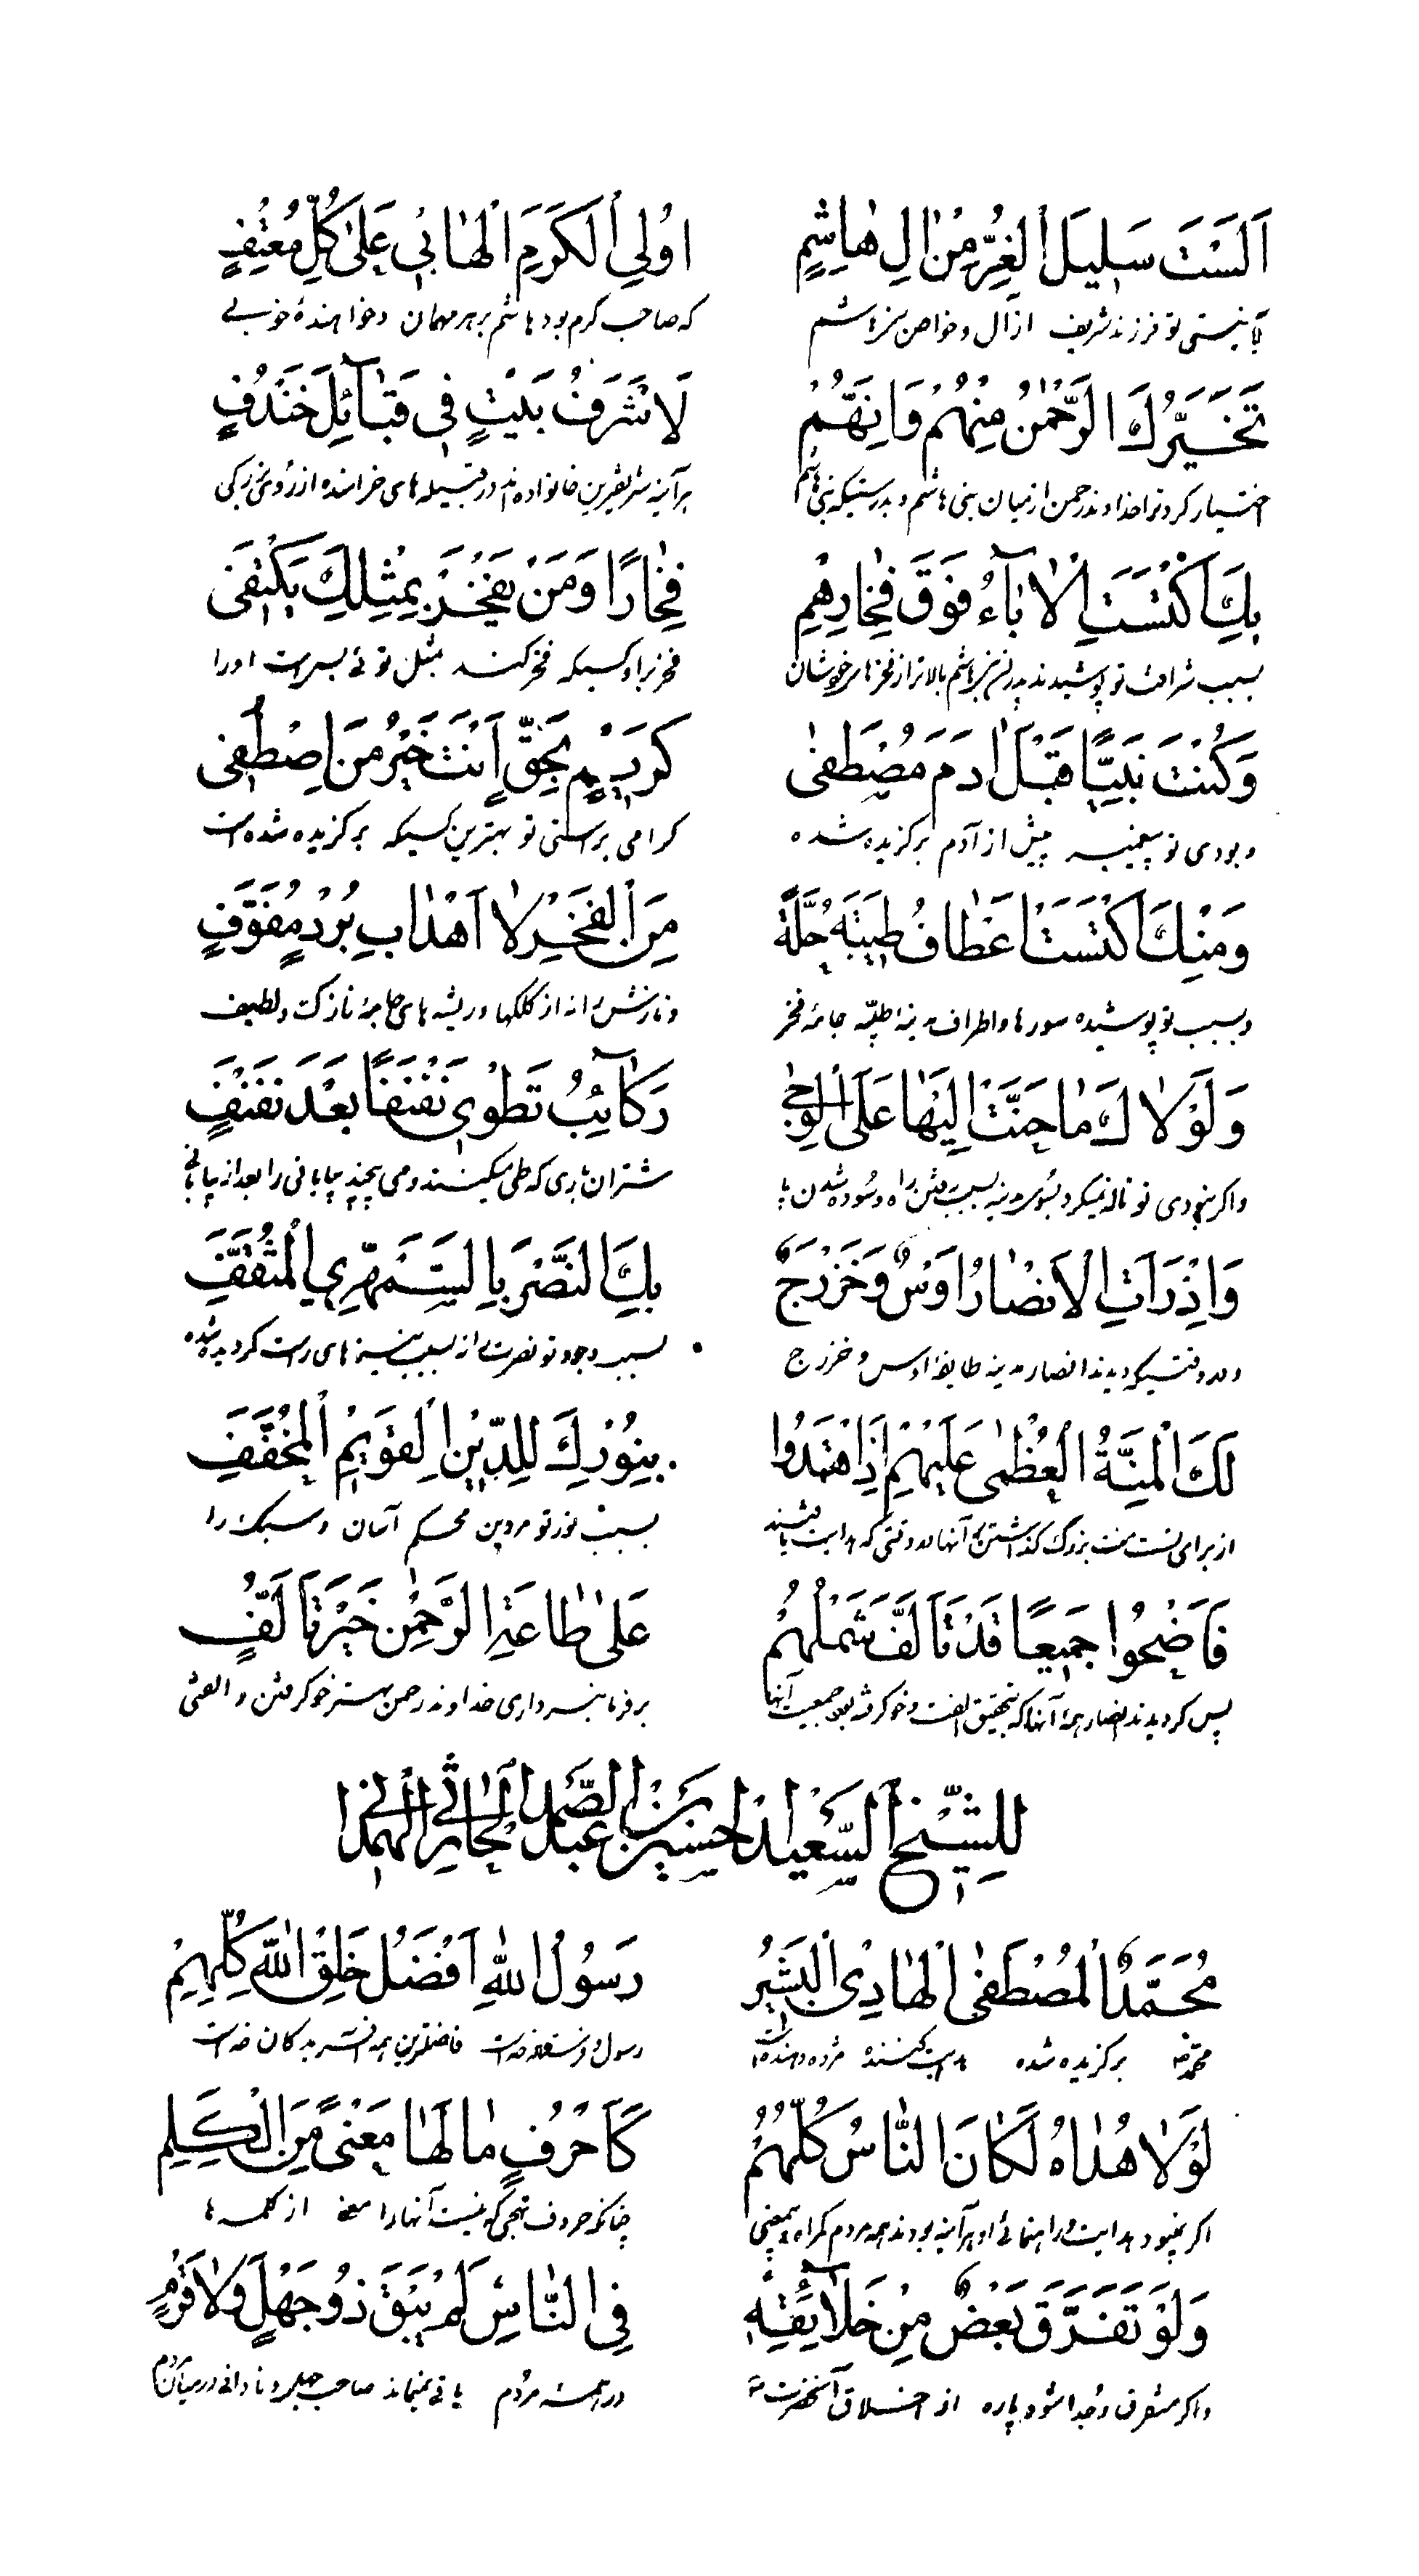 اَلَسْتَ سَلِيلَ الْغُرِّ مِنْ اٰلِ هٰاشِمٍ
اُولِي الْكَرَمِ الْهٰامِي عَلىٰ كُلِّ مُعْتَفٍ
آیا نیستی تو فرزند شریف از آل و خواص بنی هاشم
که صاحب کرم بود هاشم بر هر مهمان و خواهندهٔ خوبی
تَخَيَّرَكَ الرَّحْمٰنُ مِنْهُمْ وَاِنَّهُمْ
لَاَشْرَفُ بَيْتٍ فِي قَبٰآئِلِ خَنْدَفٍ
اختیار کرد ترا خداوند رحمن از میان بنی هاشم و بدرستیکه بنی هاشم
هرآینه شریفترین خانواده اند در قبیله های خرامنده از روی بزرگی
بِكَ اكْتَسَتِ الْاٰبٰآءُ فَوْقَ فِخٰارِهِمْ
فِخٰارًا وَمَنْ يَفْخَرْ بِمِثْلِكَ يَكْتَفى
بسبب شرافت تو پوشیدند پدران بنی هاشم بالاتر از فخرهای خویشان
فخری را و کسیکه فخر کند بمثل توئی بس است او را
وَكُنْتَ نَبِيًّا قَبْلَ اٰدَمَ مُصْطَفىٰ
كَرِيْمٍ بِحَقٍّ اَنْتَ خَيْرُ مَنِ اصْطُفِى
و بودی تو پیغمبر پیش از آدم برگزیده شده
گرامی براستی تو بهترین کسیکه برگزیده شده است
وَمِنْكَ اكْتَسَتْ اَعْطٰافُ طَيْبَةَ حُلَّةً
مِنَ الْفَخْرِ لٰا اَهْدٰابِ بُرْدٍ مُفَوَّفٍ
و بسبب تو پوشیده سورها و اطراف مدینهٔ طیّبه جامهٔ فخر
و نازش را نه از کلکها و ریشه های جامهٔ نازک و لطیف
وَلَوْلٰاكَ مٰا حَنَّتْ اِلَيْهٰا عَلَى الْوَجىٰ
رَكٰآئِبُ تَطْوِى نَفْنَفًا بَعْدَ نَفْنَفٍ
و اگر نبودی تو ناله نمیکرد بسوی مدینه بسبب رفتن راه و سوده شدن پا
شتران باری که طی میکنند و می پیچند بیابانی را بعد از بیابانی
وَاِذْ رَاَتِ الْاَنْصٰارُ اَوْسٌ وَخَزْرَجٌ
بِكَ النَّصْرَ بِالسَّمْهَرِيِّ الْمُثَقَّفِ
و در وقتیکه دیدند انصار مدینه طایفهٔ اوس و خزرج
بسبب وجود تو نصرت را نه بسبب نیزه های راست گردیده شده
لَكَ الْمِنَّةُ الْعُظْمىٰ عَلَيْهِمْ اِذَا هْتَدُوا
بِنُوْرِكَ لِلدِّيْنِ الْقَوِيْمِ الْمُخَفَّفِ
از برای تست منت بزرگ گذاشتن بر آنها در وقتی که هدایت یافتند
بسبب نور تو مر دین محکم آسان و سبک را
فَاَضْحُوا جَمِيعًا قَدْ تَاَلَّفَ شَمْلُهُمْ
عَلىٰ طٰاعَةِ الرَّحْمٰنِ خَيْرَ تَاَلُّفٍ
پس گردیدند انصار همهٔ آنها که بتحقیق الفت و خو گرفته بود جمعیت آنها
بر فرمانبرداری خداوند رحمن بهتر خو گرفتن و الفتی
لِلشَّيْخِ السَّعِيدِ حُسَيْنِ بْنِ عَبْدِ الصَّمَدِ الْحٰارِثِي الْهَمْدٰانِي
مُحَمَّدٌ الْمُصْطَفىٰ الْهٰادِى الْبَشِيْرُ
رَسُوْلُ اللّٰهِ اَفْضَلُ خَلْقِ اللّٰهِ كُلِّهِمْ
محمّد برگزیده شده هدایت کننده مژده دهنده است
رسول و فرستاده خداست فاضلترین همه آفریدگان خداست
لَوْلٰا هُدٰاهُ لَكٰانَ النّٰاسُ كُلُّهُمْ
كَاَحْرُفٍ مٰا لَهٰا مَعْنًى مِنَ الْكَلِمِ
اگر نبود هدایت و راهنمائی او هرآینه بودند همه مردم گمراه و بیمعنی
چنانکه حروف تهجی که نیست آنها را معنی از کلمه ها
وَلَوْ تَفَرَّقَ بَعْضٌ مِنْ خَلٰآئِقِهِ
فِي النّٰاسِ لَمْ يَبْقَ ذُو جَهْلٍ وَلٰا قَرْمٍ
و اگر متفرق و جدا شود پاره از اخلاق آنحضرت
در همه مردم باقی نمیماند صاحب جهل و نادانی در میان مردم